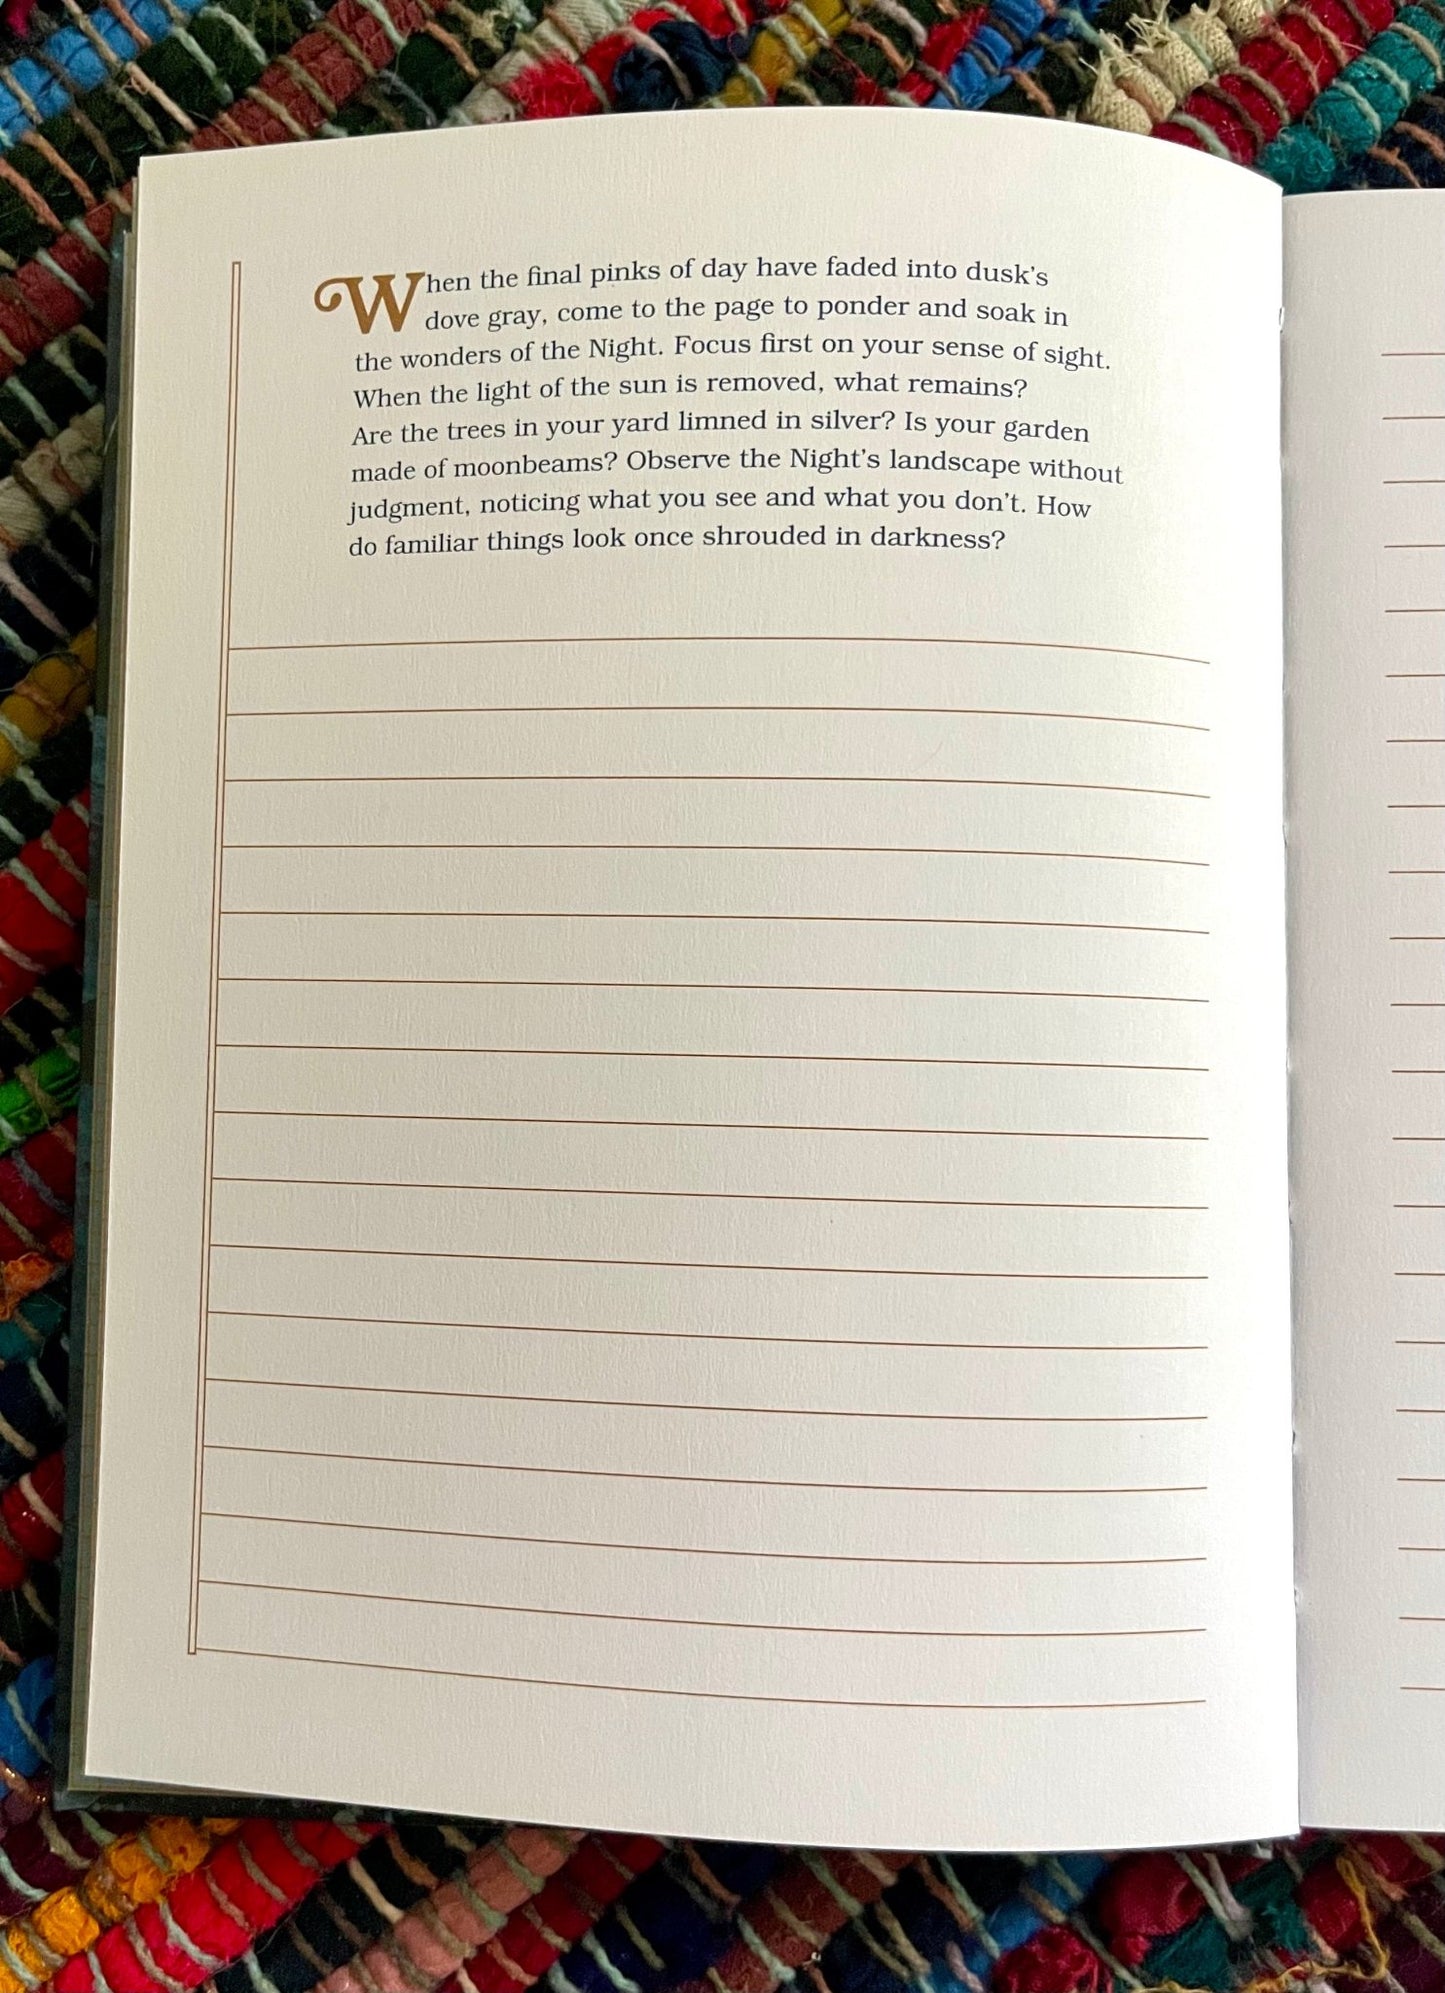 When the final pinks of day have faded into dusk's
dove gray, come to the page to ponder and soak in
the wonders of the Night. Focus first on your sense of sight.
When the light of the sun is removed, what remains?
Are the trees in your yard limned in silver? Is your garden
made of moonbeams? Observe the Night's landscape without
judgment, noticing what you see and what you don't. How
do familiar things look once shrouded in darkness?